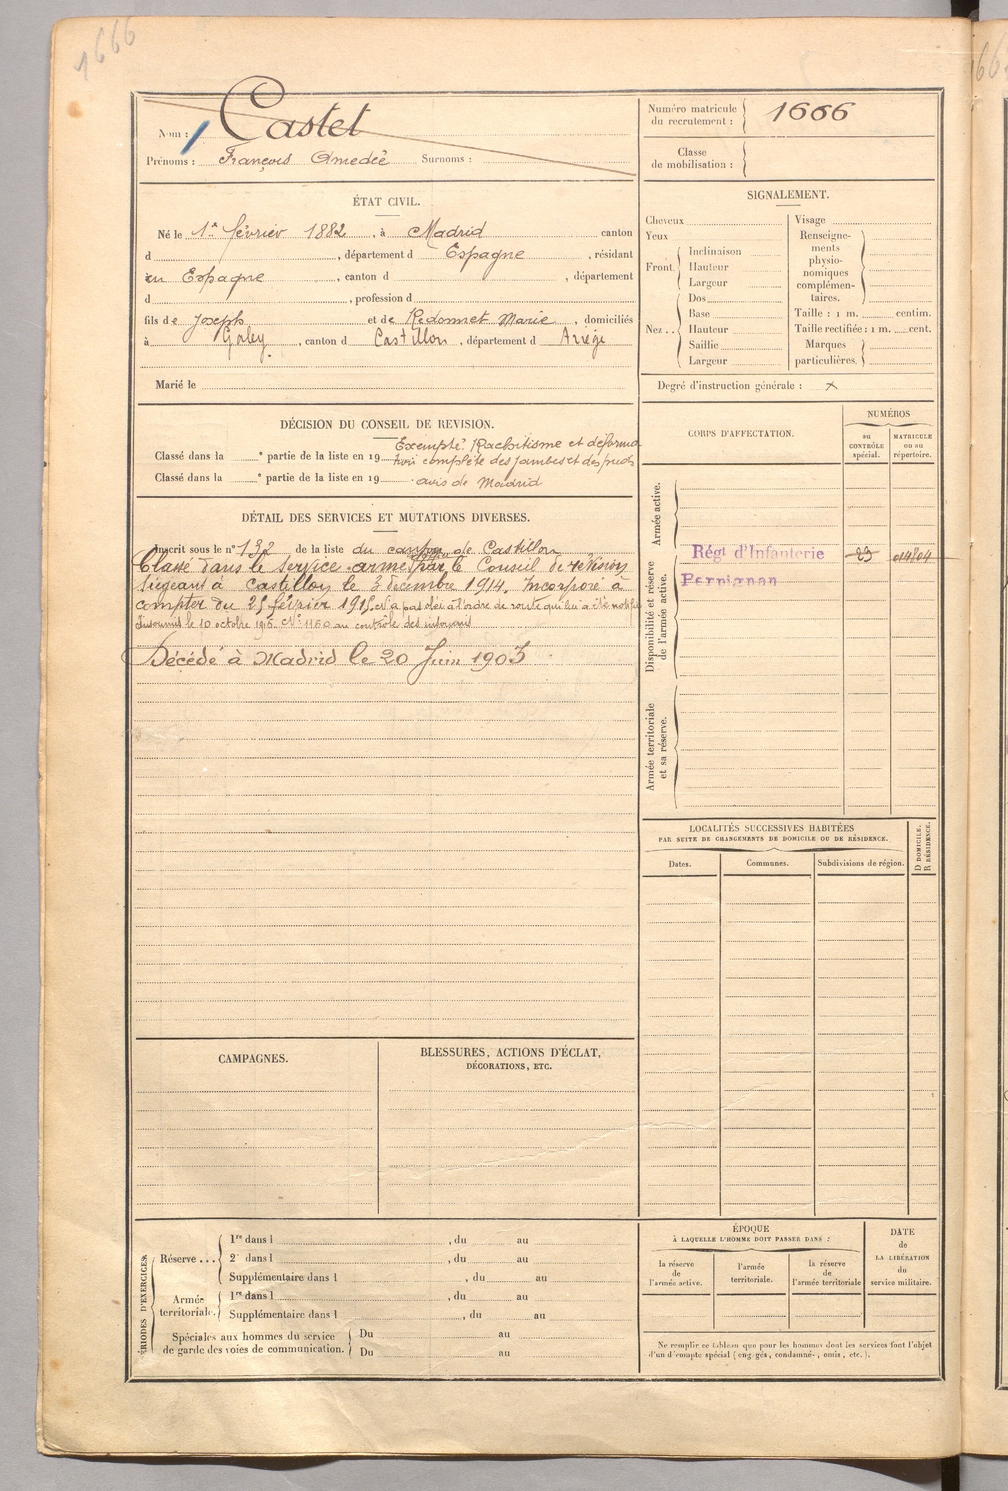 1666
Nom : Castet
Prénoms : François Amedée Surnoms :
Numéro matricule du recrutement : 1666
Classe de mobilisation :
ÉTAT CIVIL.
Né le 1er février 1882, à Madrid canton
d , département d Espagne, résidant
en Espagne, canton d , département
d , profession d
fils de Joseph et de Redonnet Marie, domiciliés
à Galey, canton d Castillon, département d Ariège
Marié le
SIGNALEMENT.
Cheveux
Yeux
Front. Inclinaison
Hauteur
Largeur
Nez... Dos
Base
Hauteur
Saillie
Largeur
Visage
Renseignements physionomiques complémentaires.
Taille : 1 m. centim.
Taille rectifiée : 1 m. cent.
Marques particulières.
Degré d'instruction générale : x
DÉCISION DU CONSEIL DE REVISION.
Exempté. Rachitisme et déforma
Classé dans la e partie de la liste en 19 tion complète des jambes et des pieds
Classé dans la e partie de la liste en 19 avis de Madrid
DÉTAIL DES SERVICES ET MUTATIONS DIVERSES.
Inscrit sous le n° 132 de la liste du canton de Castillon
Classé dans le service armé par le Conseil de révision
siégeant à Castillon le 3 décembre 1914. Incorporé à
compter du 25 février 1915. N'a pas obéi à l'ordre de route qui lui a été notifié
Insoumis le 10 octobre 1915. N° 1160 au contrôle des insoumis
Décédé à Madrid le 20 Juin 1903
CORPS D'AFFECTATION.
NUMÉROS
au CONTRÔLE spécial.
MATRICULE ou au répertoire.
Armée active.
Disponibilité et réserve de l'armée active.
Régt d'Infanterie 23 014804
Perpignan
Armée territoriale et sa réserve.
LOCALITÉS SUCCESSIVES HABITÉES
PAR SUITE DE CHANGEMENTS DE DOMICILE OU DE RÉSIDENCE.
Dates. Communes. Subdivisions de région. D DOMICILE. R RÉSIDENCE.
CAMPAGNES.
BLESSURES, ACTIONS D'ÉCLAT,
DÉCORATIONS, ETC.
PÉRIODES D'EXERCICES.
Réserve... 1re dans l , du au
2e dans l , du au
Supplémentaire dans l , du au
Armée territoriale. 1re dans l , du au
Supplémentaire dans l , du au
Spéciales aux hommes du service de garde des voies de communication. Du au
Du au
ÉPOQUE
À LAQUELLE L'HOMME DOIT PASSER DANS :
la réserve de l'armée active.
l'armée territoriale.
la réserve de l'armée territoriale
DATE de LA LIBÉRATION du service militaire.
Ne remplir ce tableau que pour les hommes dont les services font l'objet
d'un décompte spécial (engagés, condamnés, omis, etc.).